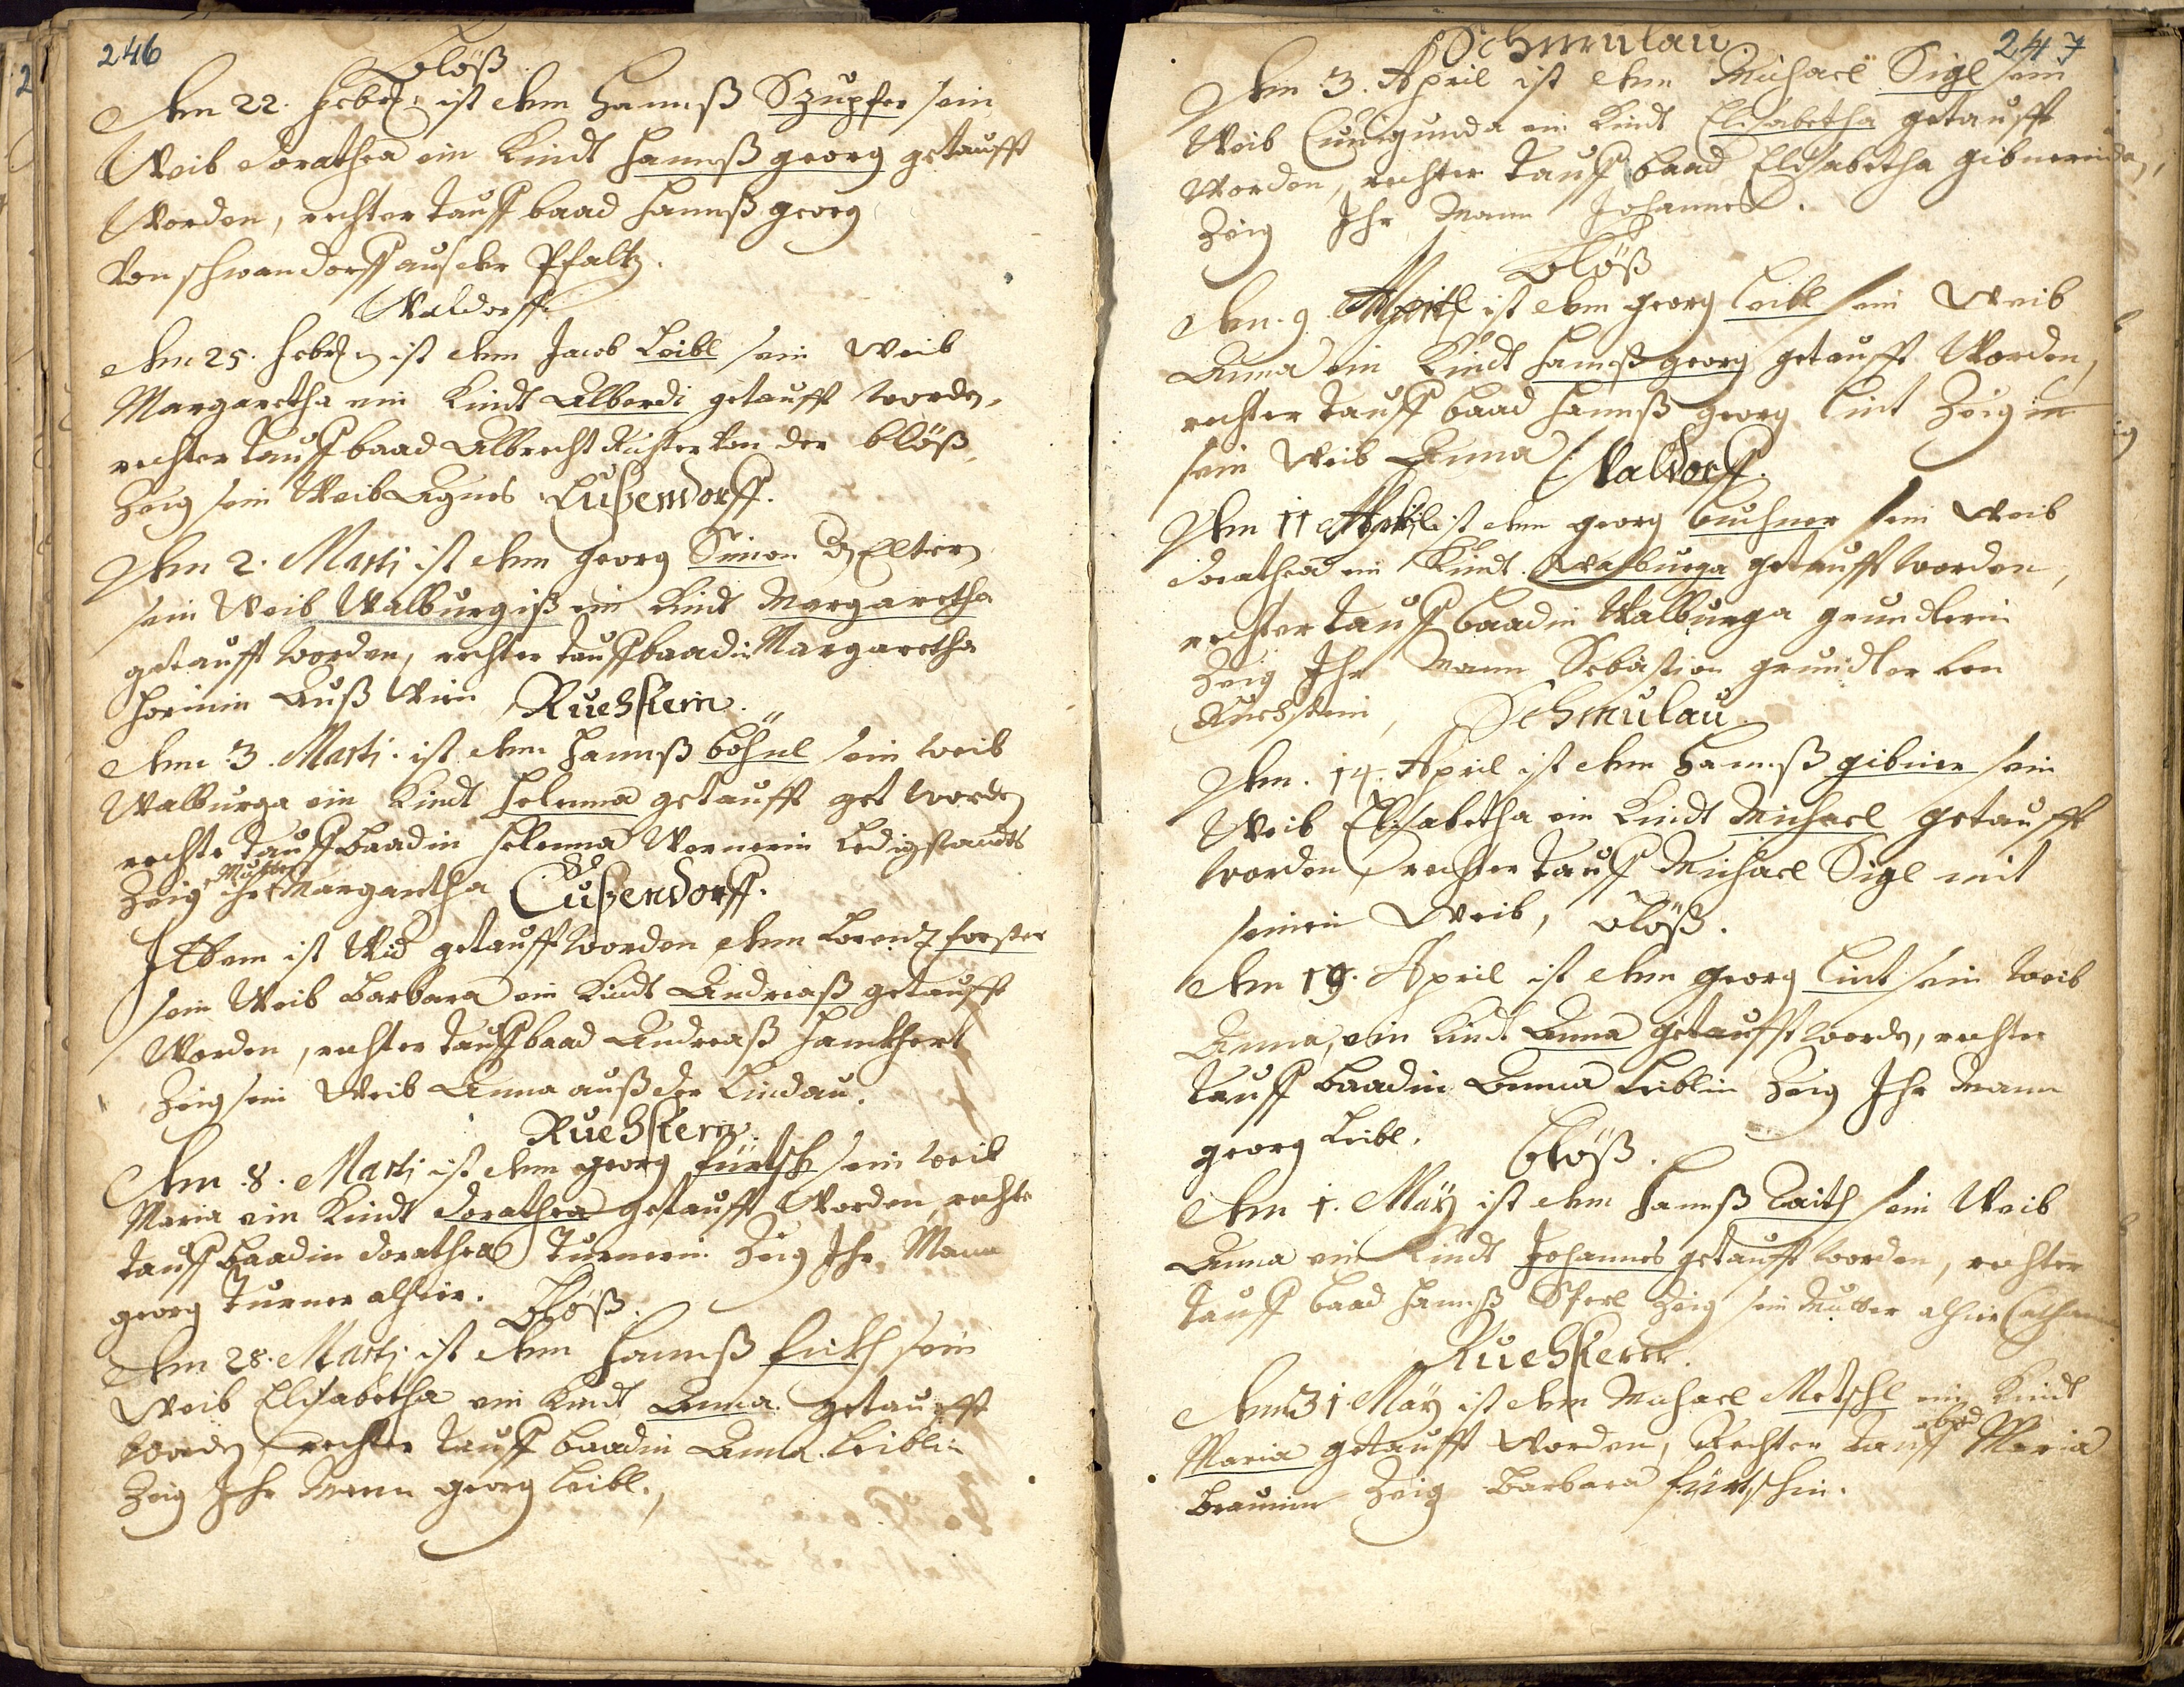 246
Blöß
Am 22. Febr: ist dem Hannß Szupfer sein
Weib Dorathea ein Kindt Hannß georg getaufft
Worden, rechter tauff baad Hannß georg
von schwandorff auß der Pfaltz.
Waldorff
Am 25. Febr: ist dem Jacob Loibl sein Weib
Margaretha ein Kindt Alberdi getaufft worden,
rechter tauff baad Albrecht Richter von der blöß,
Zeig sein Weib Agnes Lußendorff.
Am 2. Marti ist dem georg Simon d Elter
sein Weib Walburgiß ein Kindt Margaretha
getaufft worden, rechter tauffbaadin Margaretha
Auß Ruehstein.
Am 3. Marti ist dem Hannß böhnl sein weib
Walburga ein Kindt Helenna getaufft get worden
rechte tauff baadin Helenna Wernerin Ledigstandts
Zeig ihr Mutter Margaretha Lußendorff.
ist getaufft worden dem Lorentz forster
sein Weib Barbara ein Kindt Andreaß getaufft
Worden, rechter tauff baad Andreaß
Zeig sein Weib Anna auß der Lindau.
Ruehstein.
Am 8. Marti ist dem georg fürtsch sein weib
Maria ein Kindt Dorathea getaufft Worden, rechte
tauff baadin Dorathea Turnerin Zeig Ihr Mann
georg Turner alhier. Blöß.
Am 28. Marti ist dem Hannß sein
Weib Elisabetha ein Kindt Anna getaufft
worden, rechter tauff baadin Anna Leiblin
Zeig Ihr Mann georg Leibl.
247
Schmulau
Am 3. April ist dem Michael Sigl sein
Weib Cunigunda ein Kindt Elisabetha getaufft
Worden, rechter tauff baad Elisabetha gibnerin
Zeig Ihr Mann Johannes.
Blöß
Am 9. April ist dem georg Leibl sein Weib
Anna ein Kindt Hannß georg getaufft Worden,
rechter tauff baad Hannß georg Lint Zeigin
sein Weib Anna Waldorff.
Am 11 April ist dem georg buchner sein Weib
Dorathea ein Kindt Walburga getaufft worden,
rechter tauff baadin Walburga grundlerin
Zeig Ihr Mann Sebastian grundler von
Ruehstein, Schmulau.
Am 14. April ist dem Hannß gibner sein
Weib Elisabetha ein Kindt Michael getaufft
worden, rechter tauff Michael Sigl mit
seinen Weib, Blöß.
Am 19. April ist dem georg Lint sein Weib
Anna, ein Kindt Anna getaufft worden, rechter
tauff baadin Anna Leiblin Zeig Ihr Mann
georg Leibl. Blöß.
Am 1. Maÿ ist dem Hannß Raith sein Weib
Anna ein Kindt Johannes getaufft worden, rechter
tauff baad Hannß Zeig sein Mutter alhier
Ruehstein.
Am 31 Maÿ ist dem Michael Metschl ein Kindt
Maria getaufft worden, Rechter tauff baad Maria
Braunin Zeig Barbara fürtschin.